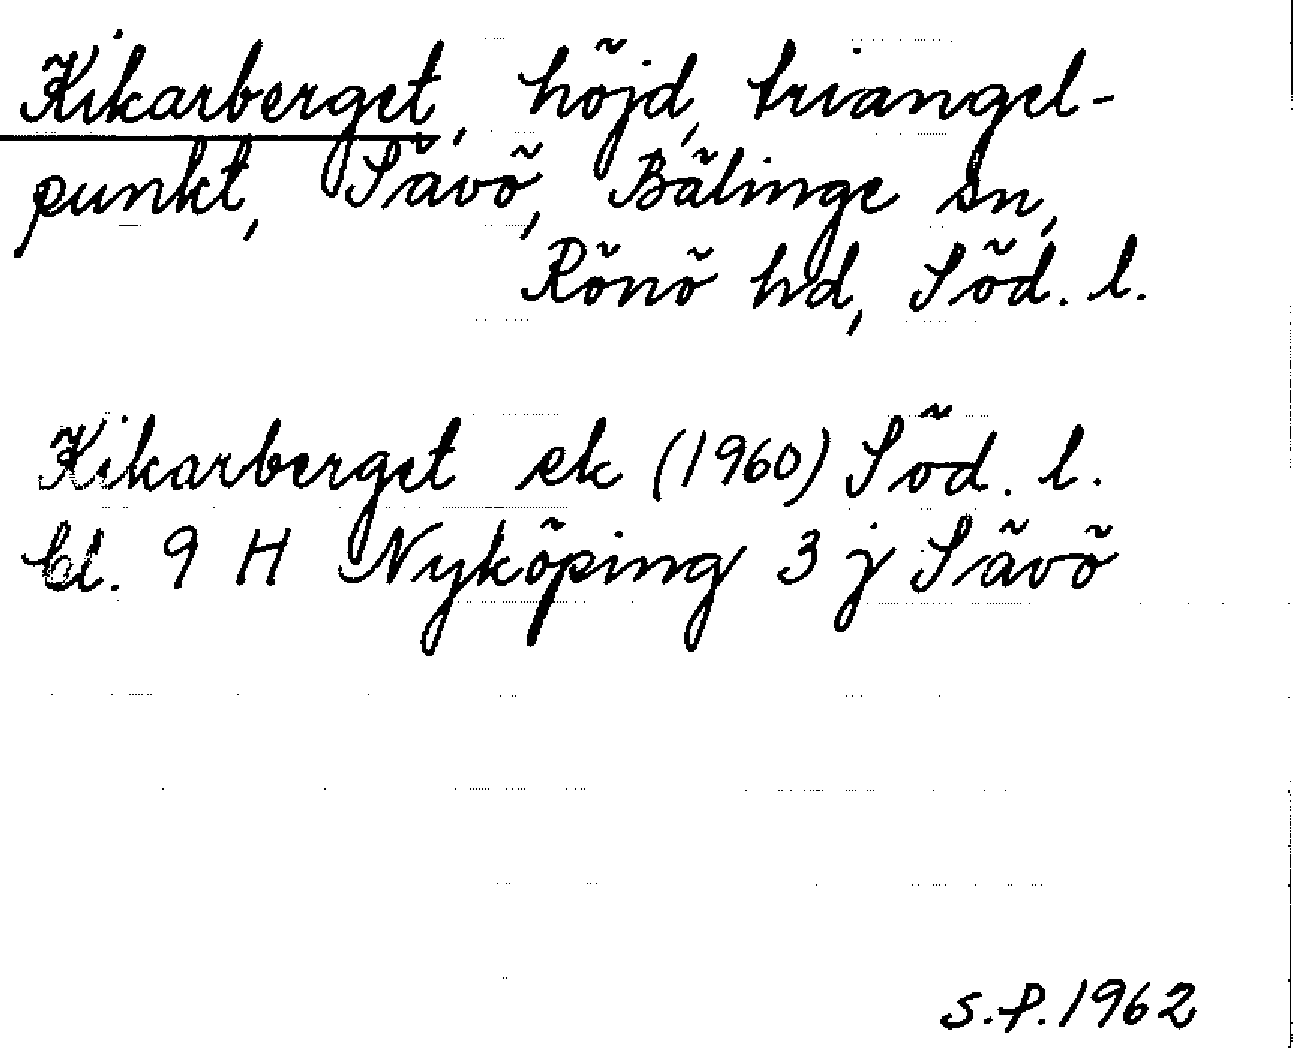 Kikarberget, höjd, triangel-
punkt, Sävö, Bälinge sn,
Rönö hd, Söd. l.
Kikarberget ek (1960) Söd. l.
bl. 9 H Nyköping 3 j Sävö
S.P. 1962